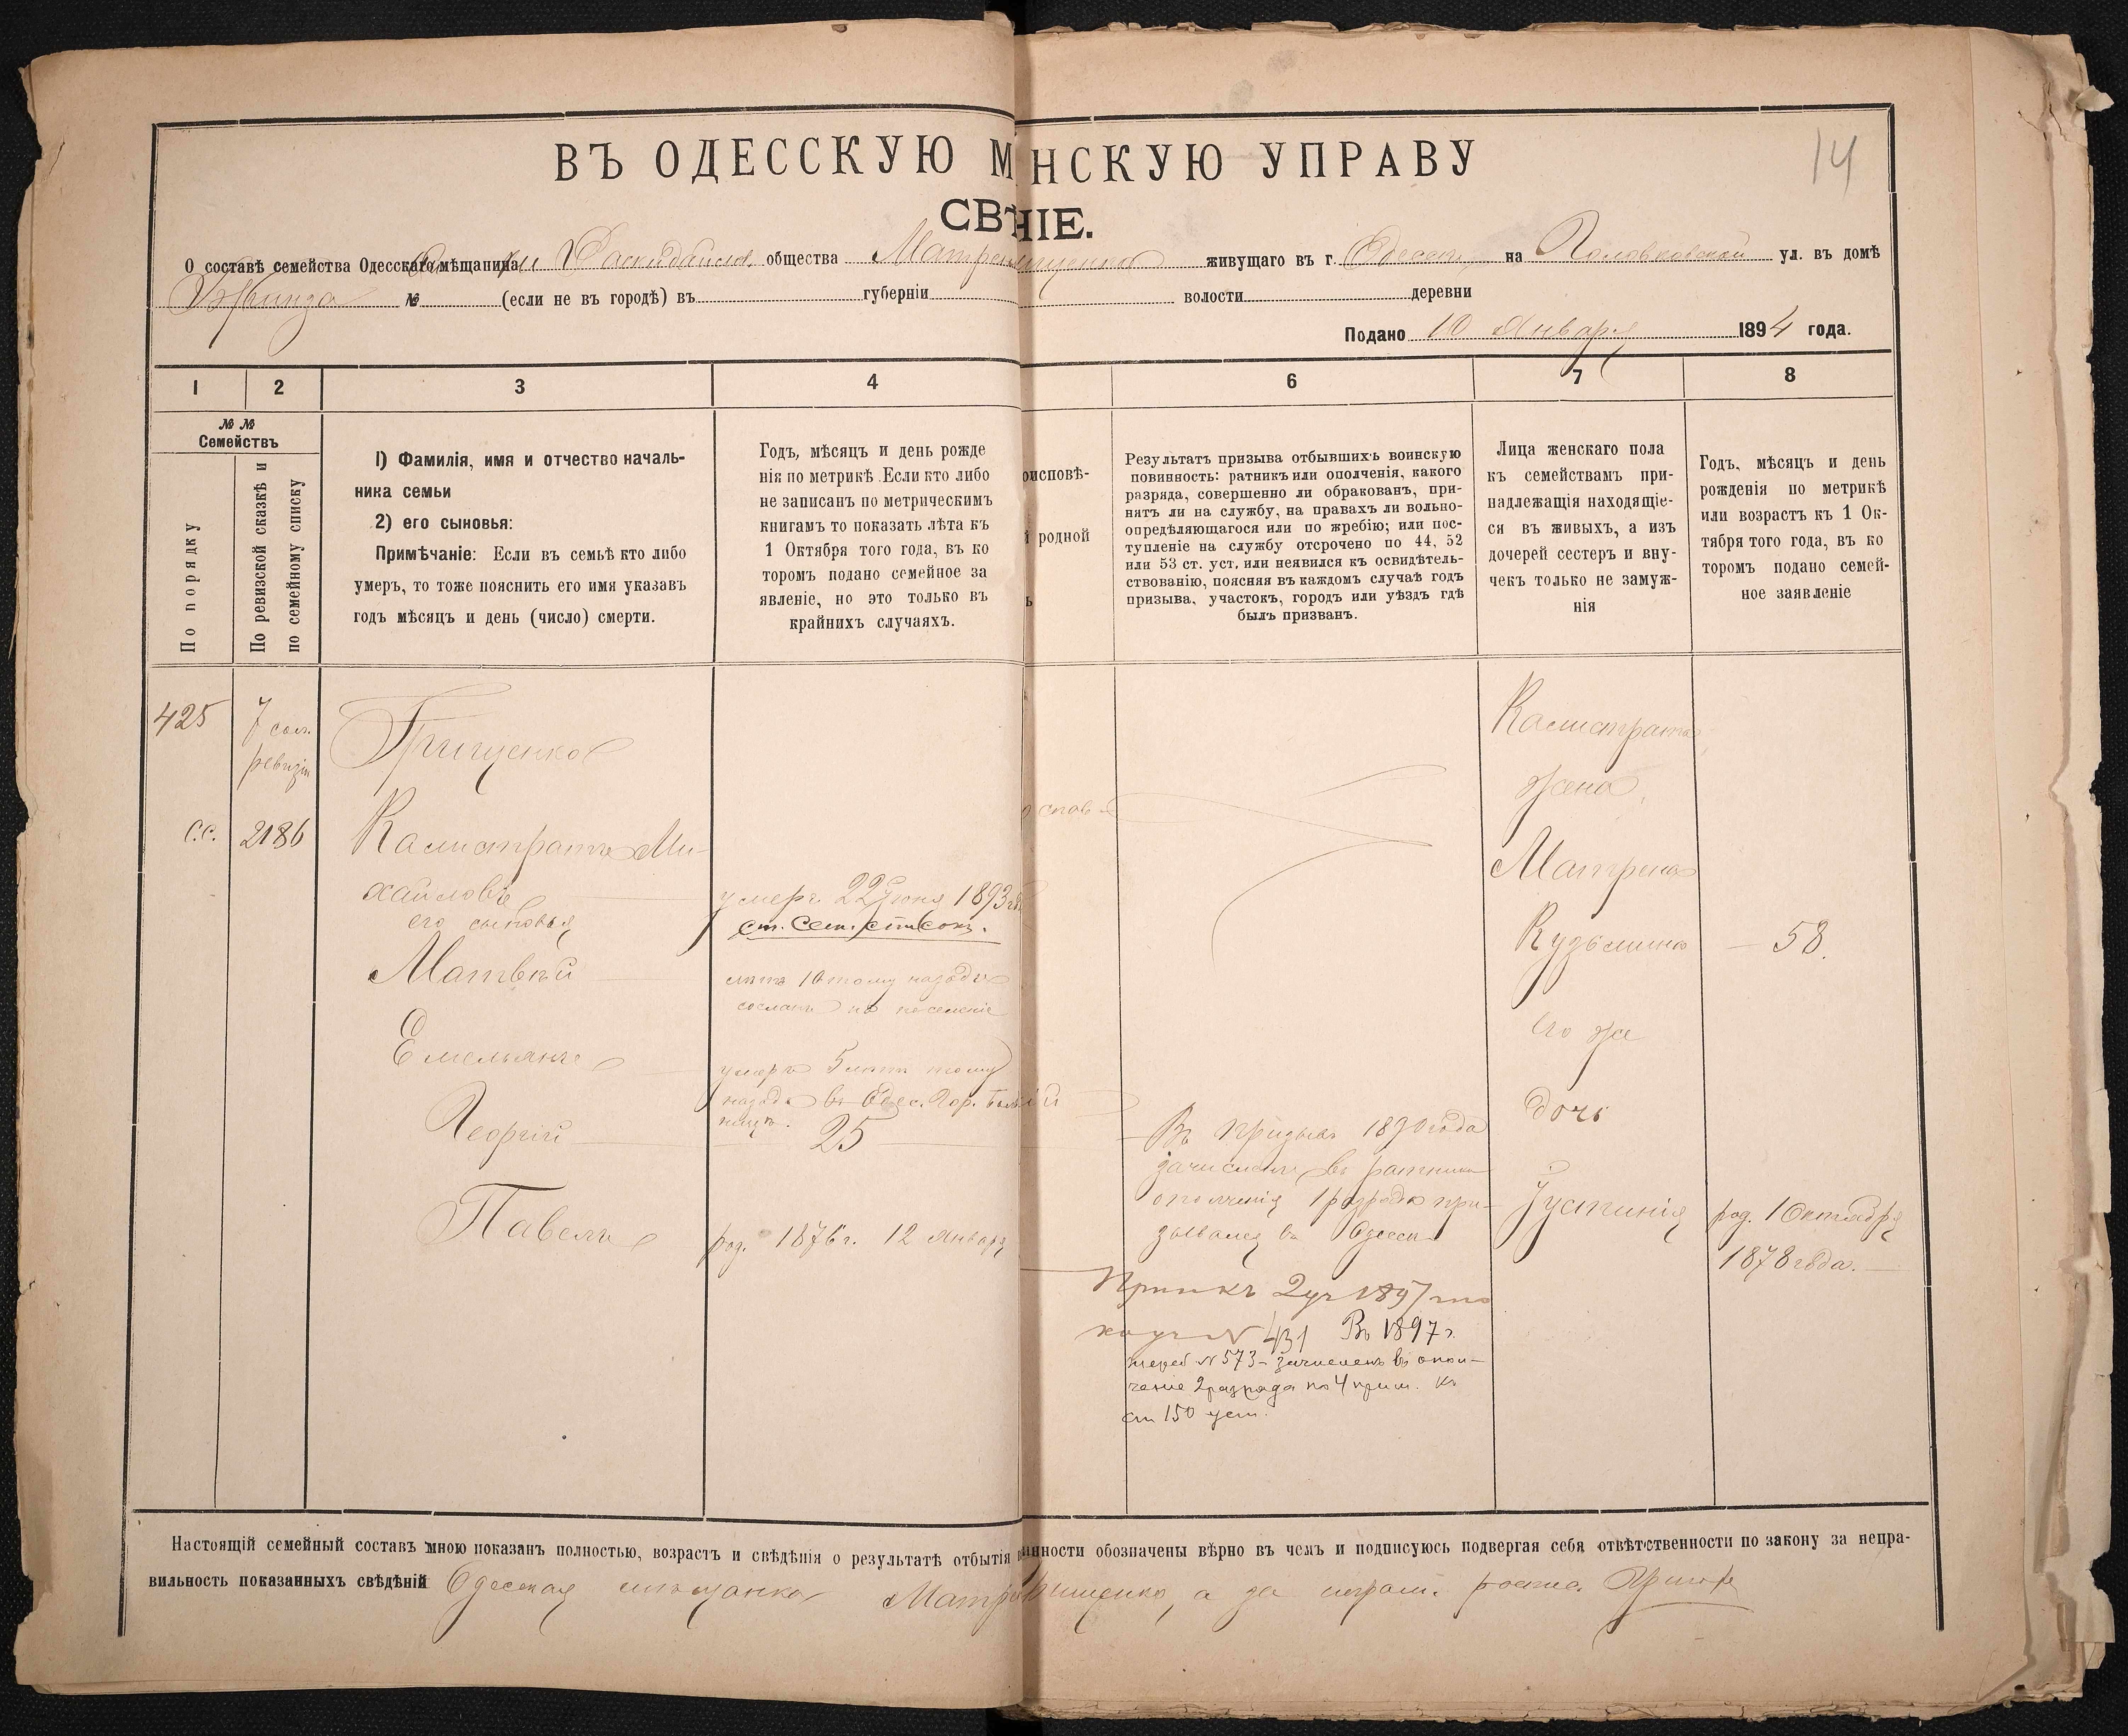 14
ВЪ ОДЕССКУЮ М НСКУЮ УПРАВУ
СВѢ НІЕ.
О составѣ семейства Одесскаго мѣщанина общества Матрены Грищенко живущаго въ г. Одессѣ на Головковской ул. въ домѣ
№ (если не въ городѣ) въ губерніи волости деревни
Подано 10 Января 1894 года.
1 2 3 4 6 7 8
№ № Семействъ
По порядку
По ревизской сказкѣ и по семейному списку
1) Фамилія, имя и отчество началь-
ника семьи
2) его сыновья:
Примѣчаніе: Если въ семьѣ кто либо
умеръ, то тоже пояснить его имя указавъ
годъ мѣсяцъ и день (число) смерти.
Годъ, мѣсяцъ и день рожде
нія по метрикѣ. Если кто либо
не записанъ по метрическимъ
книгамъ то показать лѣта къ
1 Октября того года, въ ко
торомъ подано семейное за
явленіе, но это только въ
крайнихъ случаяхъ.
оисповѣ-
й родной
ь
Результатъ призыва отбывшихъ воинскую
повинность: ратникъ или ополченія, какого
разряда, совершенно ли обракованъ, при-
нятъ ли на службу, на правахъ ли вольно-
опредѣляющагося или по жребію; или пос-
тупленіе на службу отсрочено по 44, 52
или 53 ст. уст. или неявился къ освидѣтель-
ствованію, поясняя въ каждомъ случаѣ годъ
призыва, участокъ, городъ или уѣздъ гдѣ
былъ призванъ.
Лица женскаго пола
къ семействамъ при-
надлежащія находящіе-
ся въ живыхъ, а изъ
дочерей сестеръ и вну-
чекъ только не замуж-
нія
Годъ, мѣсяцъ и день
рожденія по метрикѣ
или возрастъ къ 1 Ок-
тября того года, въ ко
торомъ подано семей-
ное заявленіе
425
7
ревизіи
с.с. 2186
Грищенко
Калистратъ Ми-
хайловъ
его сыновья
Матвѣй
Емельянъ
Георгій
Павелъ
умеръ 22 Іюня 1893 г.
ст. Сем. списокъ.
лѣтъ 10 тому назадъ
сосланъ на поселеніе
умеръ 5 лѣтъ тому
назадъ въ Одес. Гор. Боль
ницѣ.
25
род. 1876 г. 12 Января
Въ призывъ 1890 года
зачисленъ въ ратники
ополченія 1 разряда при-
зывался въ Одессѣ
Прип. къ 2 уч 1897
N 431 Въ 1897 г.
жереб N 573 - зачисленъ въ опол-
ченіе 2 разряда по 4 прим. къ
ст 150 уст.
Калистрата
жена
Матрена
Кузьмина - 58.
его же
дочь
Іустинія
род. 1 Октября
1878 года.
Настоящій семейный составъ мною показанъ полностью, возрастъ и свѣдѣнія о результатѣ отбытія нности обозначены вѣрно въ чемъ и подписуюсь подвергая себя отвѣтственности по закону за непра-
вильность показанныхъ свѣдѣній Одесская мѣщанка Матрена Грищенко, а за неграм. роспис.